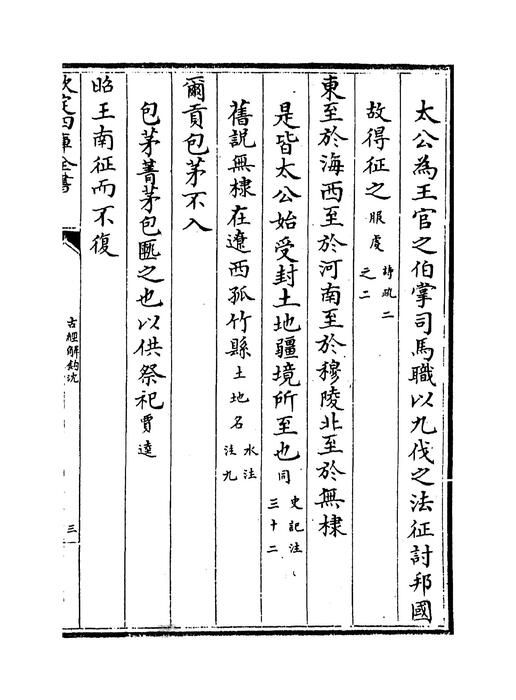 太公為王官之伯掌司馬職以九伐之法征討邦國
故得征之服虔詩疏二之二
東至於海西至於河南至於穆陵北至於無棣
是皆太公始受封土地疆境所至也同史記注三十二
舊説無棣在遼西孤竹縣土地名水注注九
爾貢包茅不入
包茅菁茅包匭之也以供祭祀賈逵
昭王南征而不復
欽定四庫全書
古經解鉤沈
三